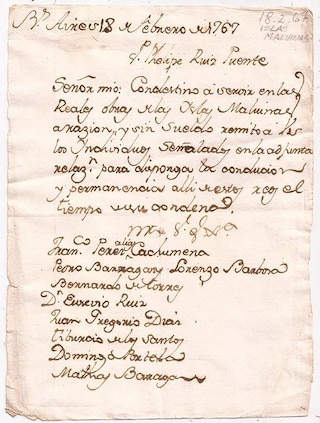 18.2.67
ISLAS
MALVINAS
Bs. Aires 18 de Febrero de 1767
Dn. Phelipe Ruiz Puente
Señor mio: Con destino a servir en las
Reales obras de las Yslas Malvinas
a razion, y sin sueldo remito a
los Yndividuos señalados en la adjunta
relazn. para disponga la conducion
y permanencia alli de estos reos el
tiempo de su condena.
Fran.co Perez alias Cachumena
Pedro Barragan, y Lorenzo Barbosa
Bernardo de torres
Dn. Eusevio Ruiz
Juan Gregorio Diaz
tiburcio de los Santos
Domingo Portela
Mathias Baraga